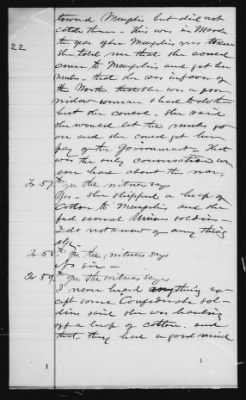 22
toward Memphis but did not
catch them - this was in March
the year after Memphis was taken
She told me that she could
come to Memphis and get her
mules - that she was in favor of
the North that she was a poor
widow woman & had to do the
best she could, she said
she would let the mules go
on and she could get her
pay of the Government. That
was the only conversation we
ever had about the war.
To 57th Int. the witness says
Yes - she shipped a heap of
Cotton to Memphis and she
fed several Union soldiers -
I do not know of any thing
else.
To 58th Int. the witness says
No sir -
To 59th Int. the witness says
I never heard anything ex-
cept some Confederate sol-
diers said she was hauling
off a heap of cotton, and
that they had a good mind